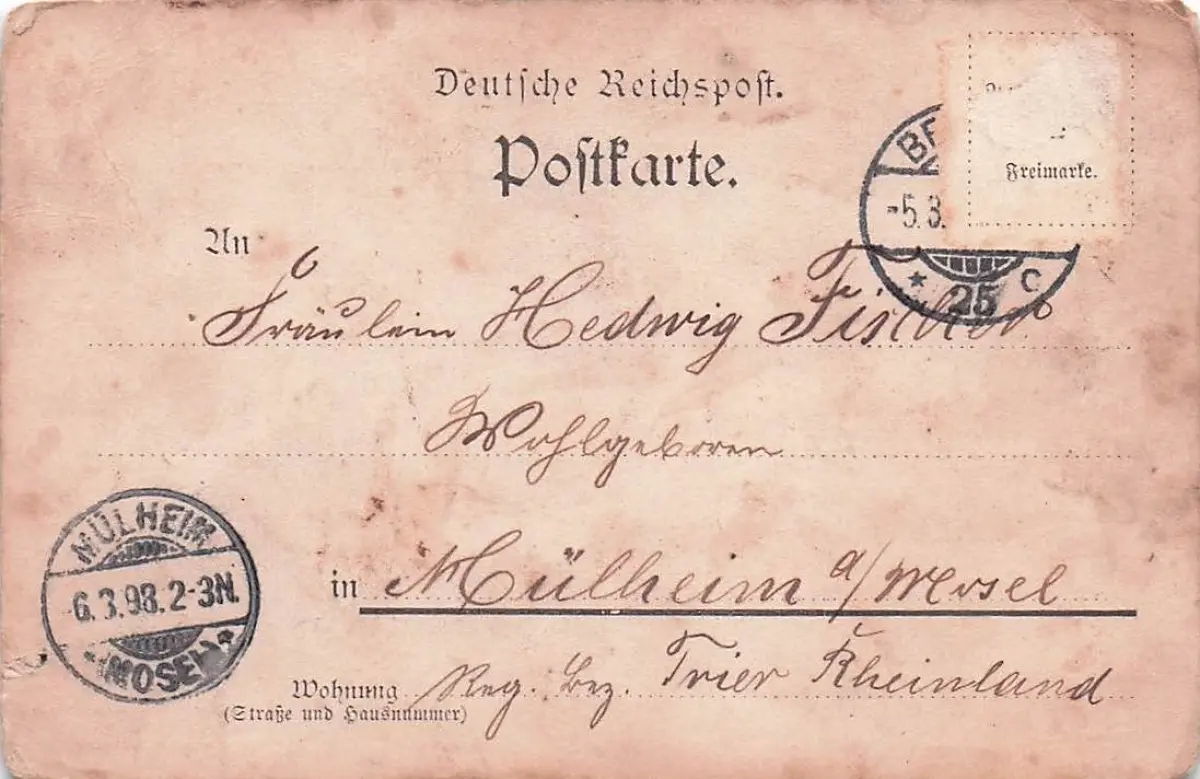 Deutsche Reichspost.
Postkarte.
Freimarke.
-5.3.
* 25 C
An
Fräulein Hedwig Fischer
Wohlgeboren
MÜLHEIM
6.3.98.2-3N.
(MOSEL)*
in Mülheim a/Mosel
Wohnung Reg. Bez. Trier Rheinland
(Straße und Hausnummer)